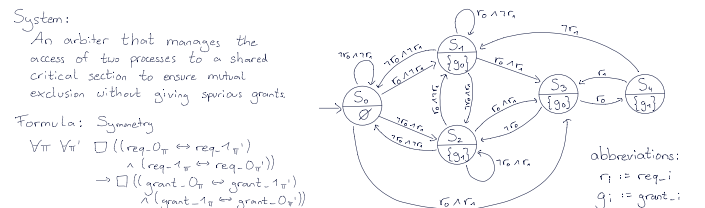 System:
An arbiter that manages the
access of two processes to a shared
critical section to ensure mutual
exclusion without giving spurious grants.
Formula: Symmetry
∀π ∀π' □ ((req_0π ↔ req_1π')
∧ (req_1π ↔ req_0π'))
→ □ ((grant_0π ↔ grant_1π')
∧ (grant_1π ↔ grant_0π'))
r₀ ∧ ¬r₁
¬r₁
S₁
{g₀}
¬r₀ ∧ ¬r₁
¬r₀ ∧ ¬r₁
r₀ ∧ ¬r₁
r₀ ∧ r₁
r₁
S₀
∅
S₃
{g₀}
S₄
{g₁}
r₀
¬r₀ ∧ r₁
r₀ ∧ ¬r₁
¬r₀ ∧ r₁
¬r₀ ∧ ¬r₁
r₀ ∧ r₁
¬r₀
S₂
{g₁}
¬r₀ ∧ r₁
r₀ ∧ r₁
abbreviations:
rᵢ := req_i
gᵢ := grant_i